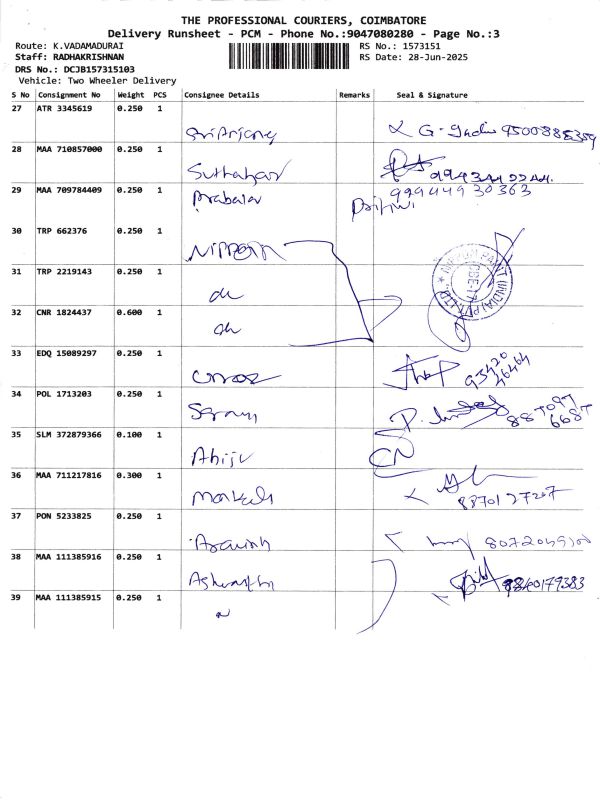 THE PROFESSIONAL COURIERS, COIMBATORE
Delivery Runsheet - PCM - Phone No.:9047080280 - Page No.:3
Route: K.VADAMADURAI RS No.: 1573151
Staff: RADHAKRISHNAN RS Date: 28-Jun-2025
DRS No.: DCJB157315103
Vehicle: Two Wheeler Delivery
S No Consignment No Weight PCS Consignee Details Remarks Seal & Signature
27 ATR 3345619 0.250 1
28 MAA 710857000 0.250 1
Suthahar
29 MAA 709784409 0.250 1 99944930363
Prabakar
30 TRP 662376 0.250 1
NIPPON
31 TRP 2219143 0.250 1
do
32 CNR 1824437 0.600 1
do
33 EDQ 15089297 0.250 1
34 POL 1713203 0.250 1
35 SLM 372879366 0.100 1
Abiju
36 MAA 711217816 0.300 1
8870127207
37 PON 5233825 0.250 1
Aravinth
38 MAA 111385916 0.250 1
Ashwathi
39 MAA 111385915 0.250 1